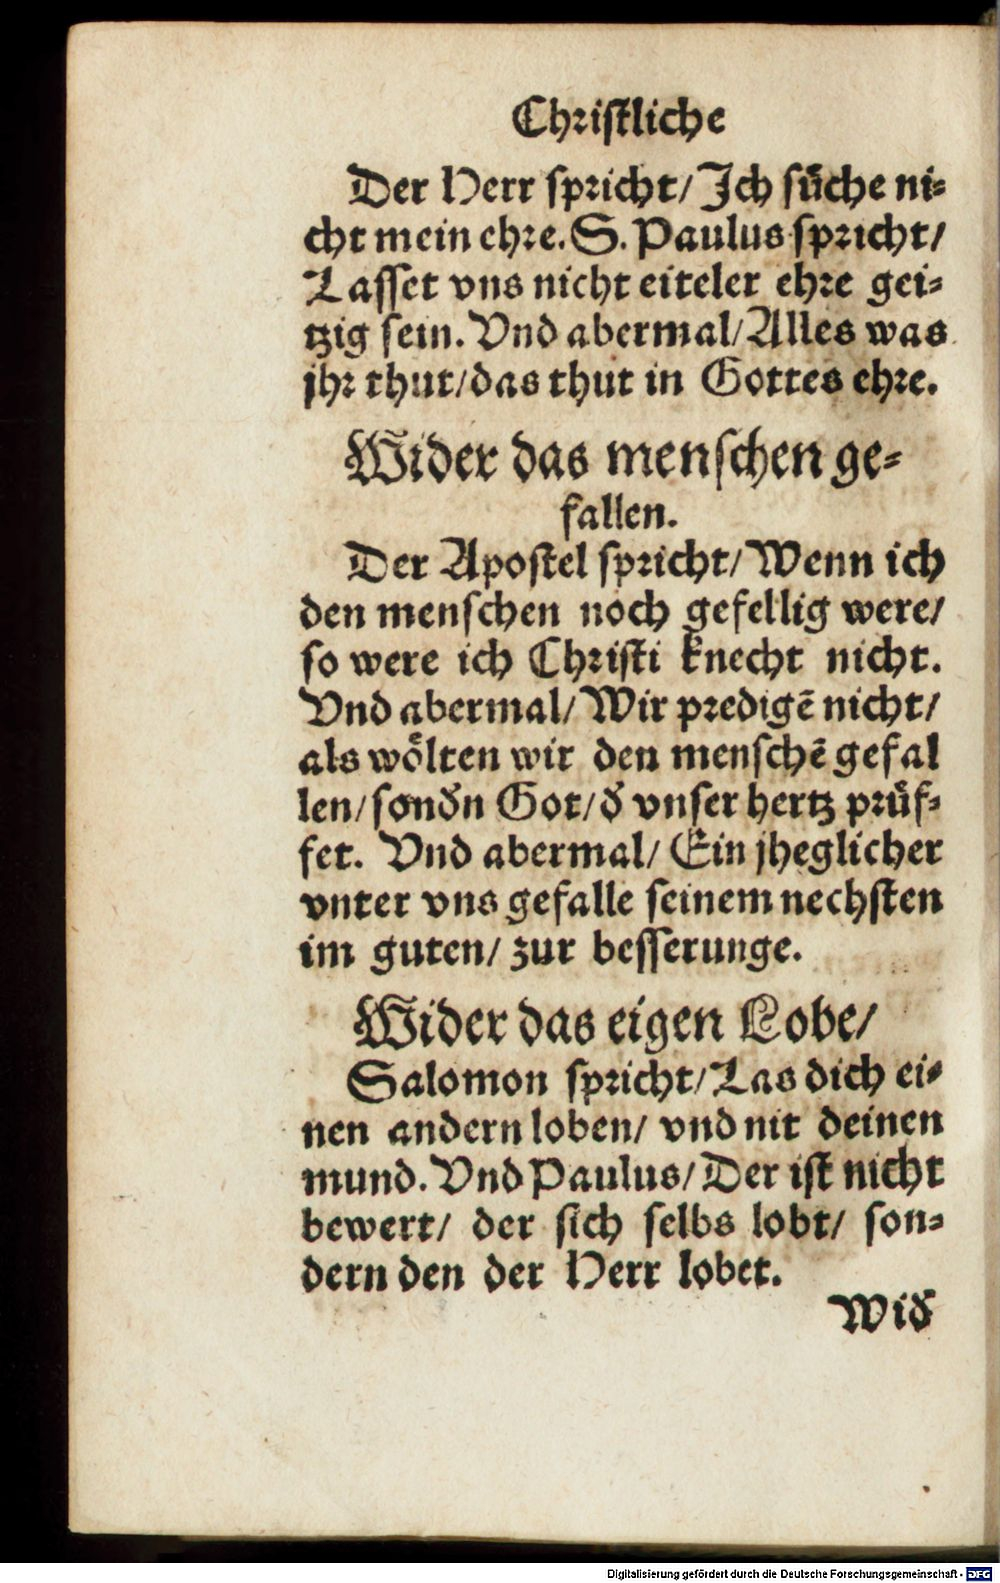 Christliche
Der Herr spricht/ Jch sůche ni⸗
cht mein ehre. S. Paulus spricht/
Lasset vns nicht eiteler ehre gei⸗
tzig sein. Vnd abermal/ Alles was
jhr thut/ das thut in Gottes ehre.
Wider das menschen ge⸗
fallen.
Der Apostel spricht/ Wenn ich
den menschen noch gefellig were/
so were ich Christi knecht nicht.
Vnd abermal/ Wir predigē nicht/
als woͤlten wir den menschē gefal
len/ sondn̄ Got/ đ vnser hertz pruͤf⸗
fet. Vnd abermal/ Ein jheglicher
vnter vns gefalle seinem nechsten
im guten/ zur besserunge.
Wider das eigen Lobe/
Salomon spricht/ Las dich ei⸗
nen andern loben/ vnd nit deinen
mund. Vnd Paulus/ Der ist nicht
bewert/ der sich selbs lobt/ son⸗
dern den der Herr lobet.
Widđ
Digitalisierung gefördert durch die Deutsche Forschungsgemeinschaft - DFG